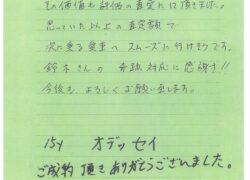 その価値も評価の査定には頂きました。
思っていた以上の査定額で
次に乗る愛車へスムーズに行けそうです。
鈴木さんの 対応に感謝!!
今後も、よろしくお願い致します。
15y オデッセイ
ご成約頂きありがとうございました。